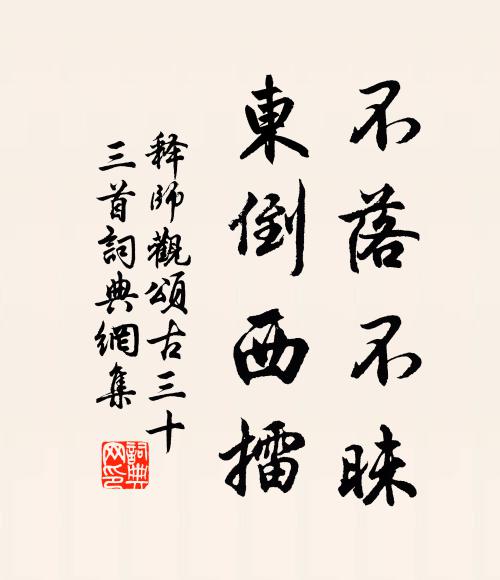 不落不昧
東倒西擂
释師觀頌古三十
三首詞典網集
詞典
网印